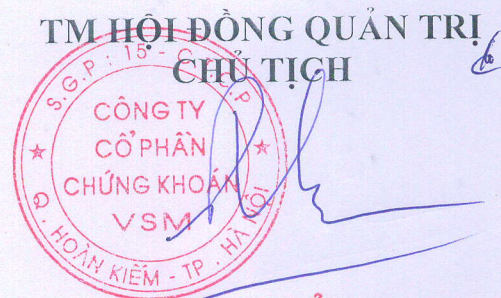 TM HỘI ĐỒNG QUẢN TRỊ
CHỦ TỊCH
S.G.P: 15 -
CÔNG TY
CỔ PHẦN
CHỨNG KHOÁN
VSM
Q. HOÀN KIẾM - TP. HÀ NỘI